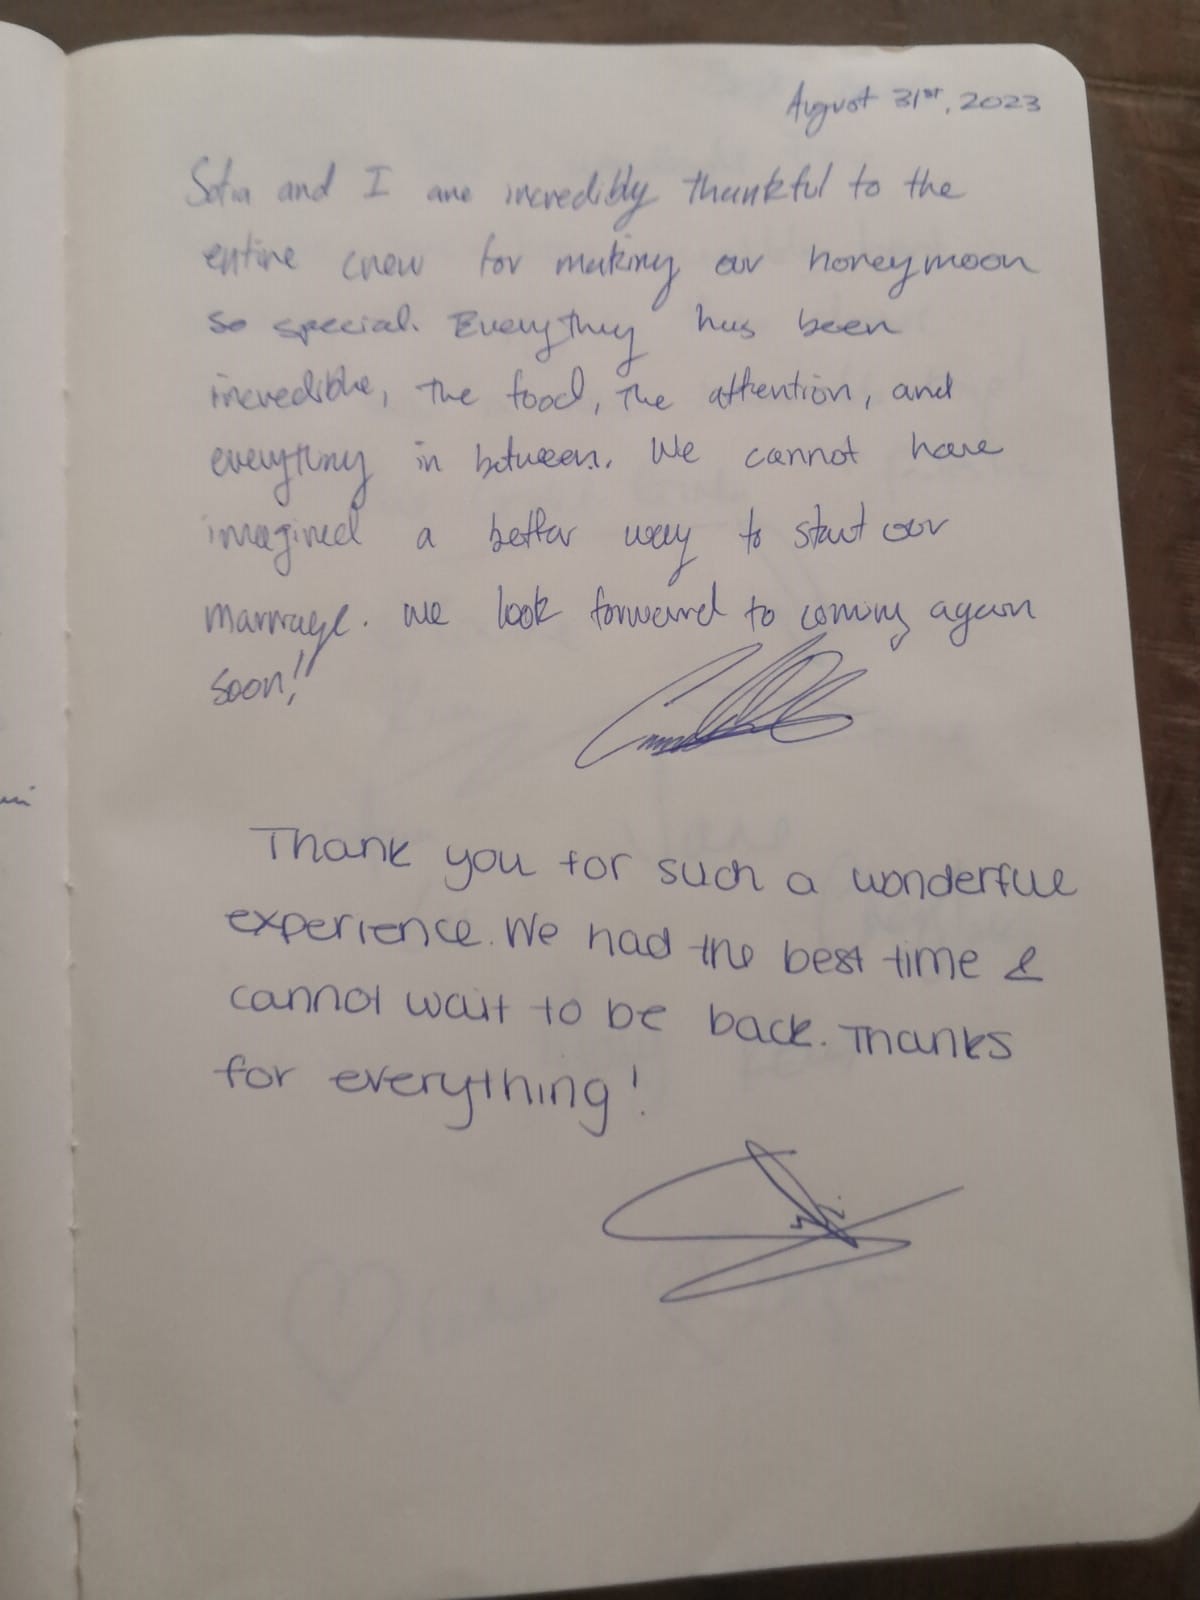 August 31st, 2023
Sofia and I are incredibly thankful to the
entire crew for making our honeymoon
so special. Everything has been
incredible, the food, the attention, and
everything in between. We cannot have
imagined a better way to start our
marriage. We look forward to coming again
soon!!
Thank you for such a wonderful
experience. We had the best time &
cannot wait to be back. Thanks
for everything!